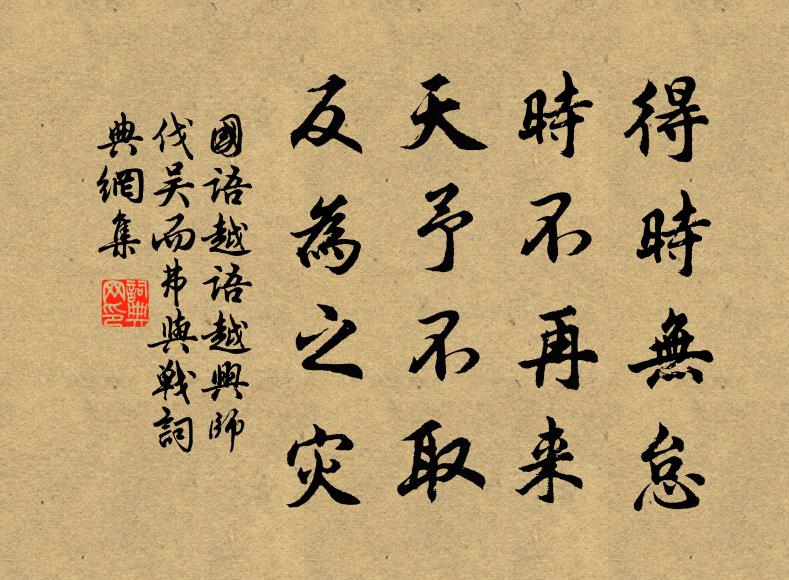 得時無怠
時不再来
天予不取
反為之灾
國語越語越興師
伐吴而弗與戦詞
典網集
詞典
网印